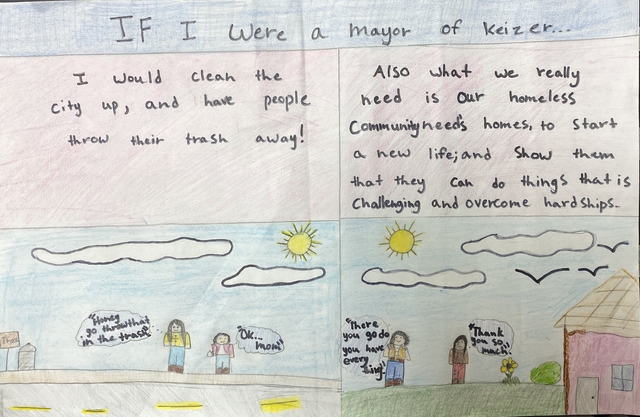 IF I were a mayor of Keizer...
I would clean the
city up, and have people
throw their trash away!
Also what we really
need is our homeless
Community needs homes, to start
a new life; and show them
that they can do things that is
Challenging and overcome hardships.
"Honey
go throw that
in the trash"
"Ok...
mom"
"There
you go do
you have
every
thing"
"Thank
you so
much."